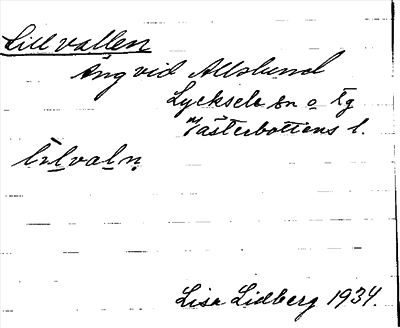 Lillvallen
Äng vid Allslund
Lycksele sn o tg
Västerbottens l.
Lisa Lidberg 1934.